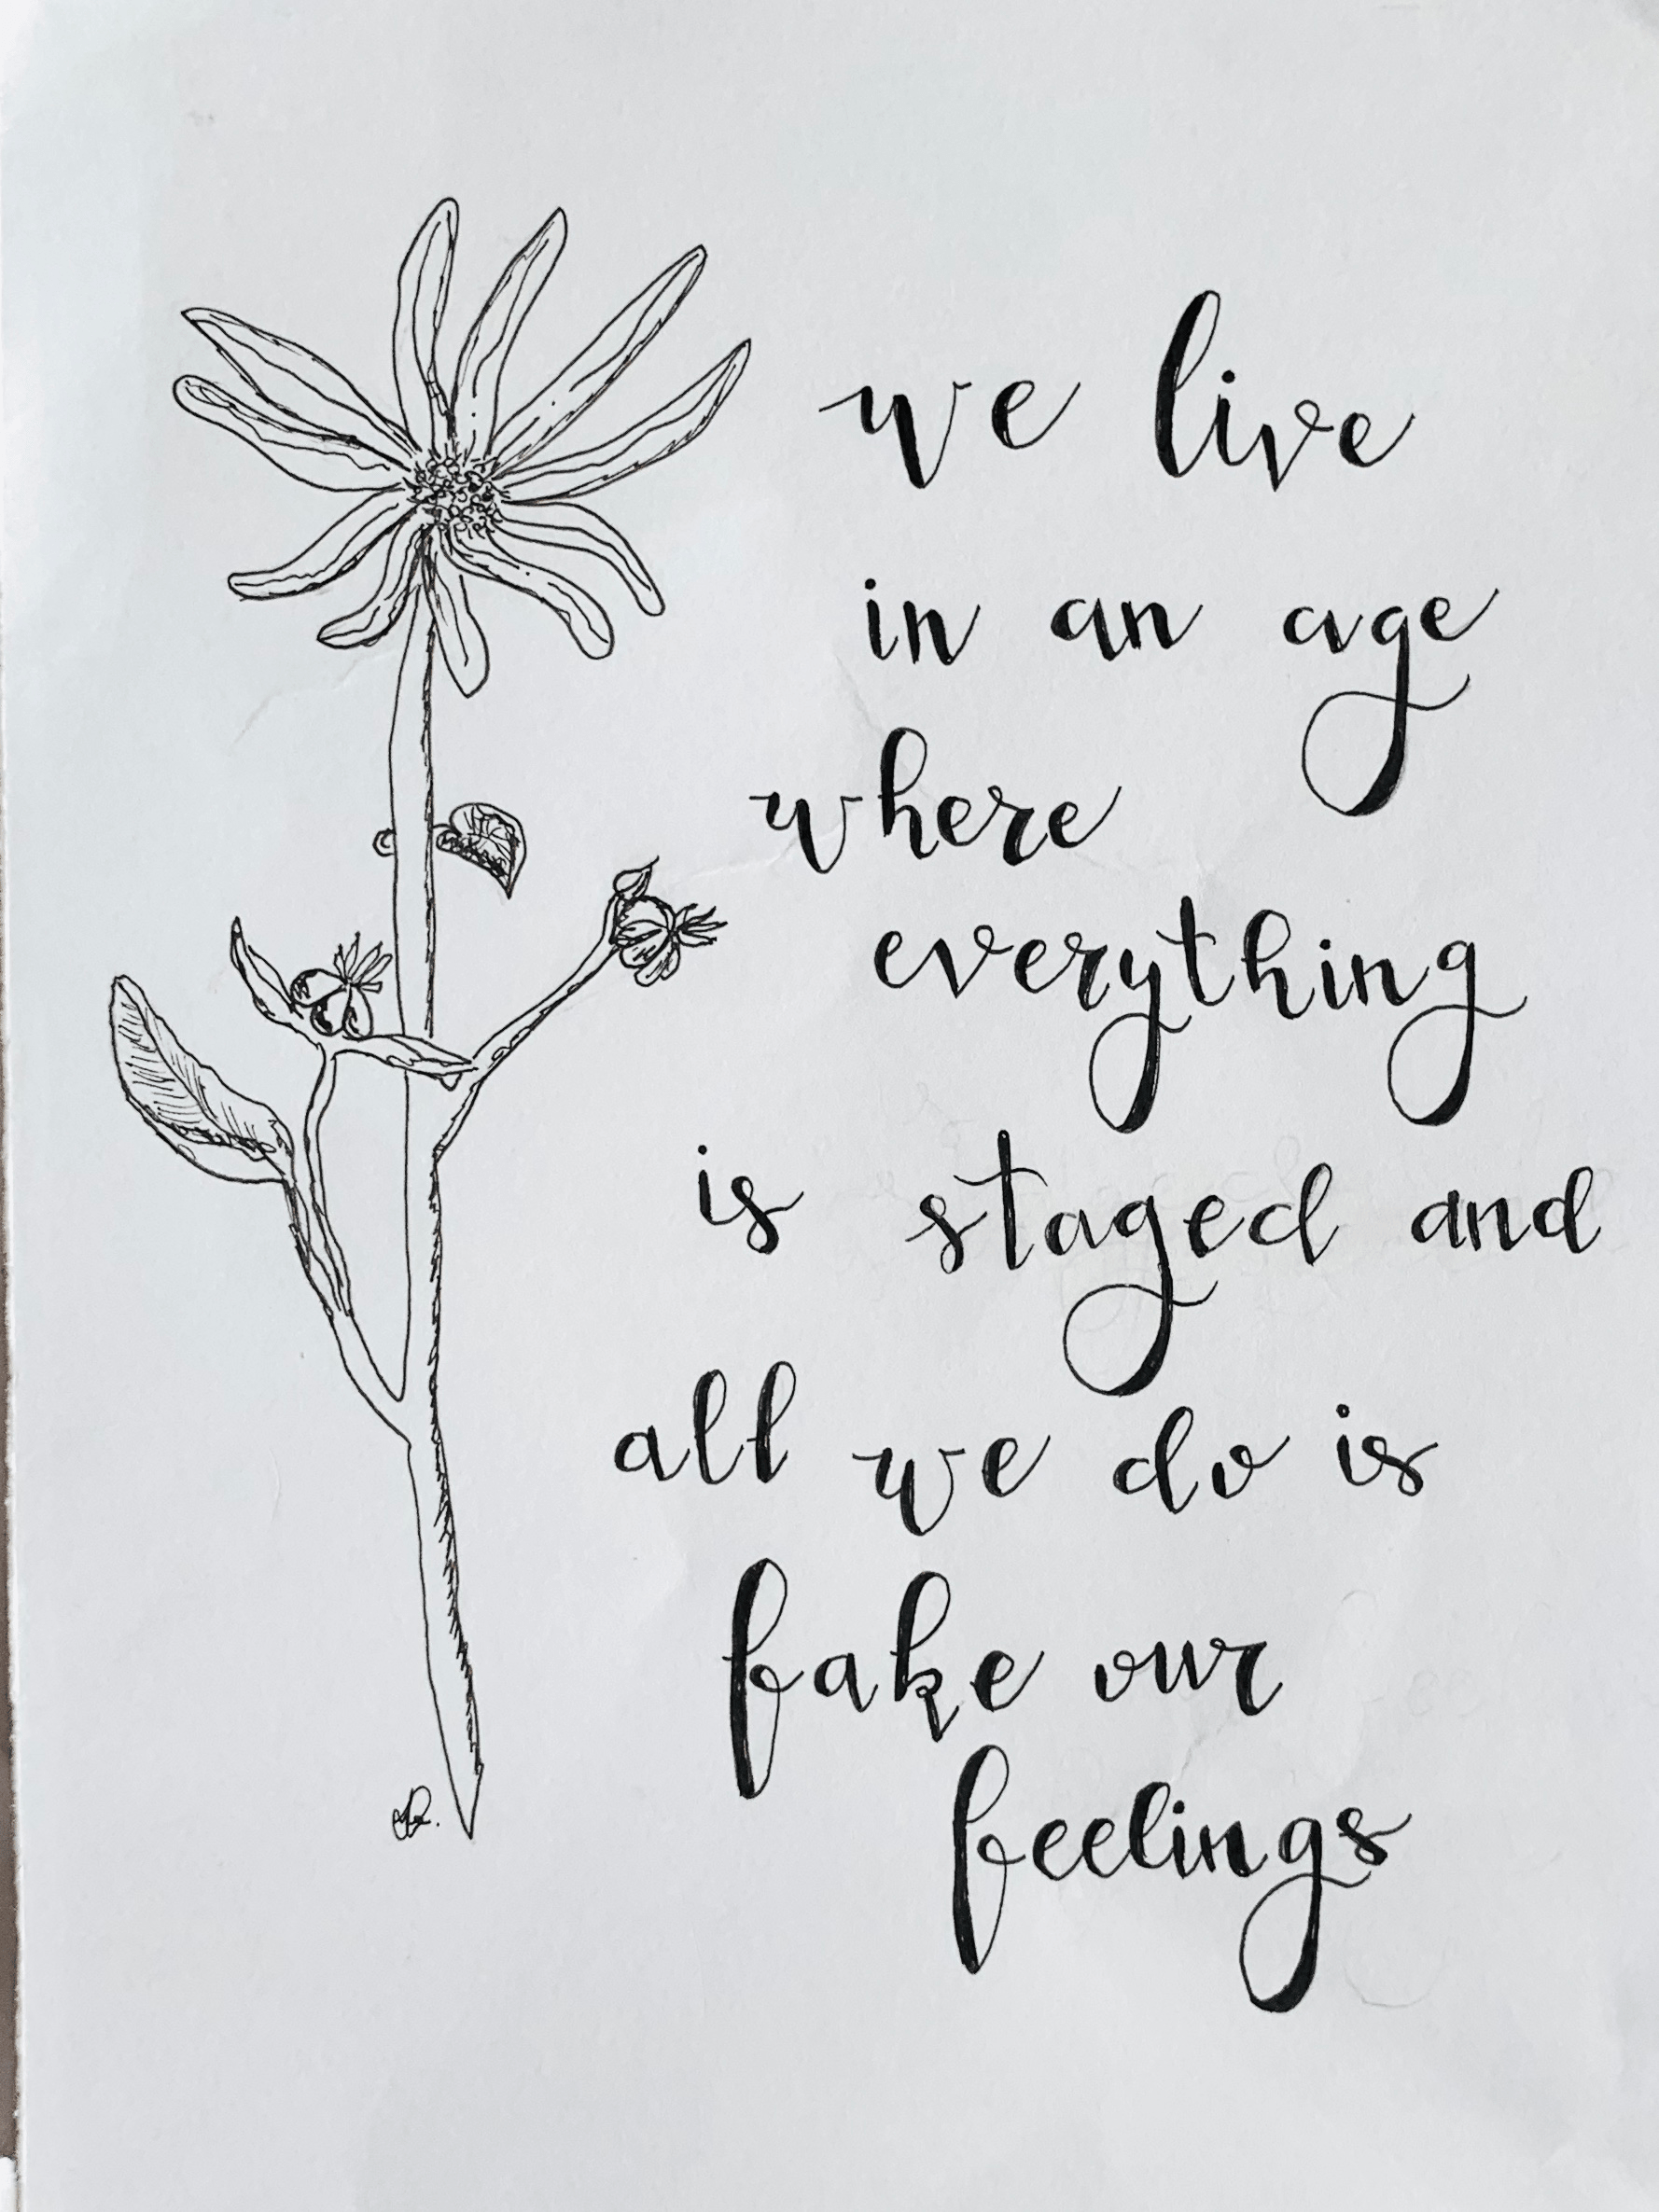 we live
in an age
where
everything
is staged and
all we do is
fake our
feelings